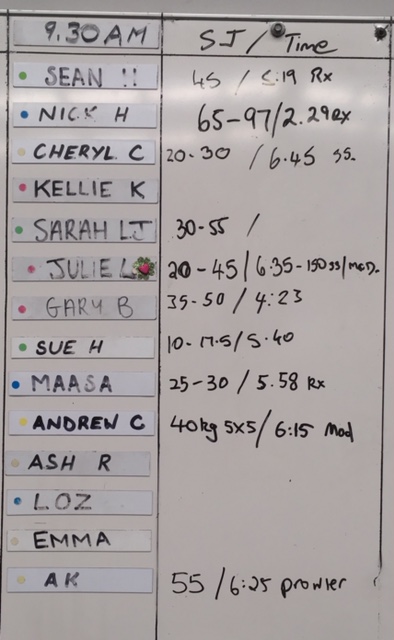 9.30AM SJ / Time
SEAN !! 45 / 5:19 Rx
NICK H 65-97/2.29Rx
CHERYL C 20-30 / 6.45 ss.
KELLIE K
SARAH LJ 30-55 /
JULIE L 20-45/6:35-150ss/med.
GARY B 35-50 / 4:23
SUE H 10-17.5/5.40
MAASA 25-30 / 5.58 Rx
ANDREW C 40kg 5x5/6:15 Mod
ASH R
LOZ
EMMA
AK 55 /6:25 prowler